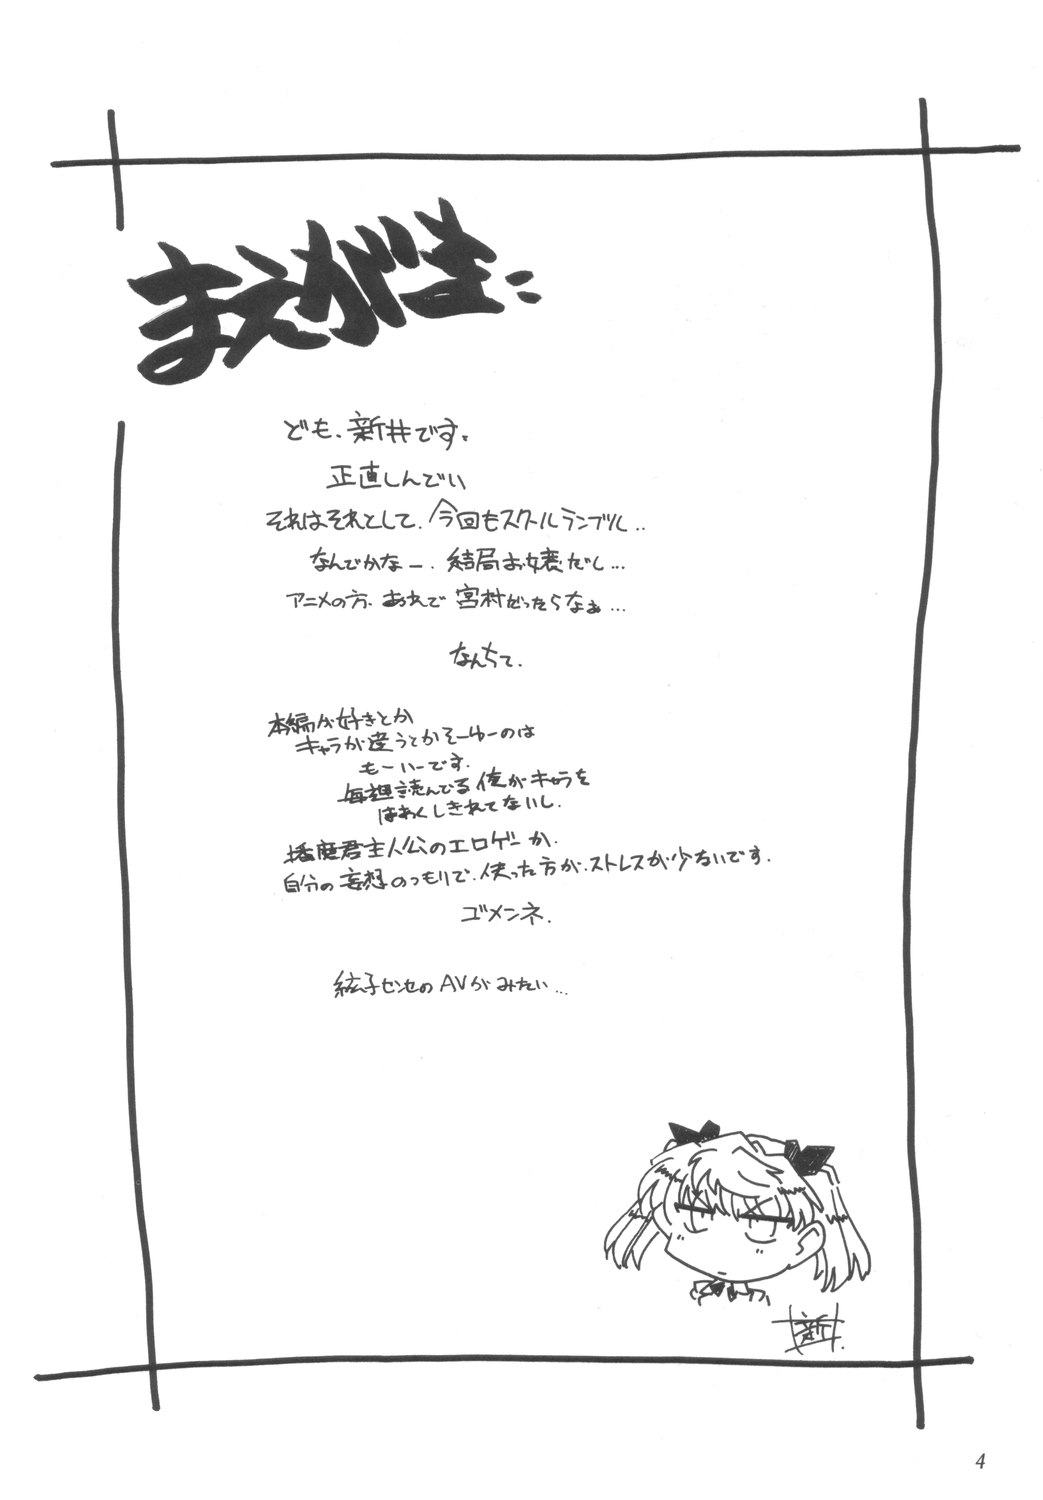 まえがき
ども、新井です。
正直しんどい
それはそれとして、今回もスクールランブル..
なんでかなー、結局お嬢だし...
アニメの方、あれで宮村だったらなぁ...
なんちて.
本編が好きとか
キャラが違うとかそーゆーのは
もーいーです.
毎週読んでる俺がキャラを
はあくしきれてないし.
播磨君主人公のエロゲーか.
自分の妄想のつもりで、使った方が、ストレスが少ないです.
ゴメンネ.
絃子センセのAVがみたい...
新井.
4